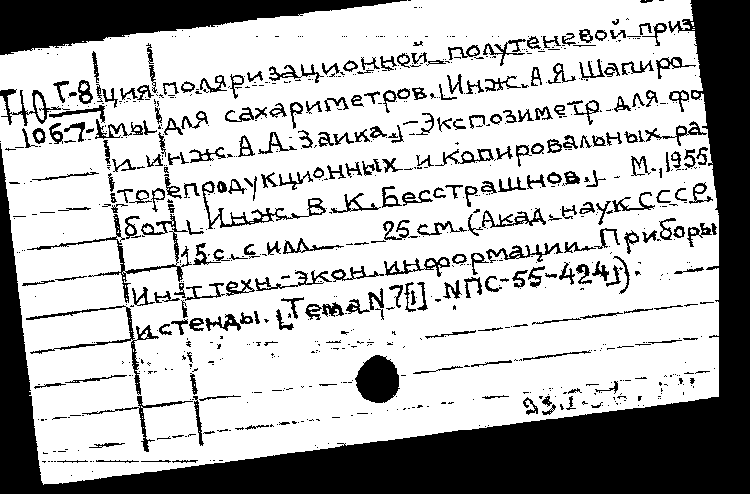 ция поляризационной полутеневой приз
Т-8
мы для сахариметров. [Инж. А.Я. Шапиро
106-7-
и инж. А.А. Заика.] -Экспозиметр для фо
торепродукционных и копировальных ра-
бот. [Инж. В.К. Бесстрашнов.] М., 1955.
15 с. с илл. 25 см. (Акад. наук СССР.
Ин-т техн.-экон. информации. Приборы
и стенды. [Тема N 7[.] NПС-55-424]).